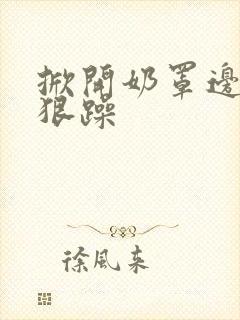 掀開奶罩邊
狠躁
徐風來